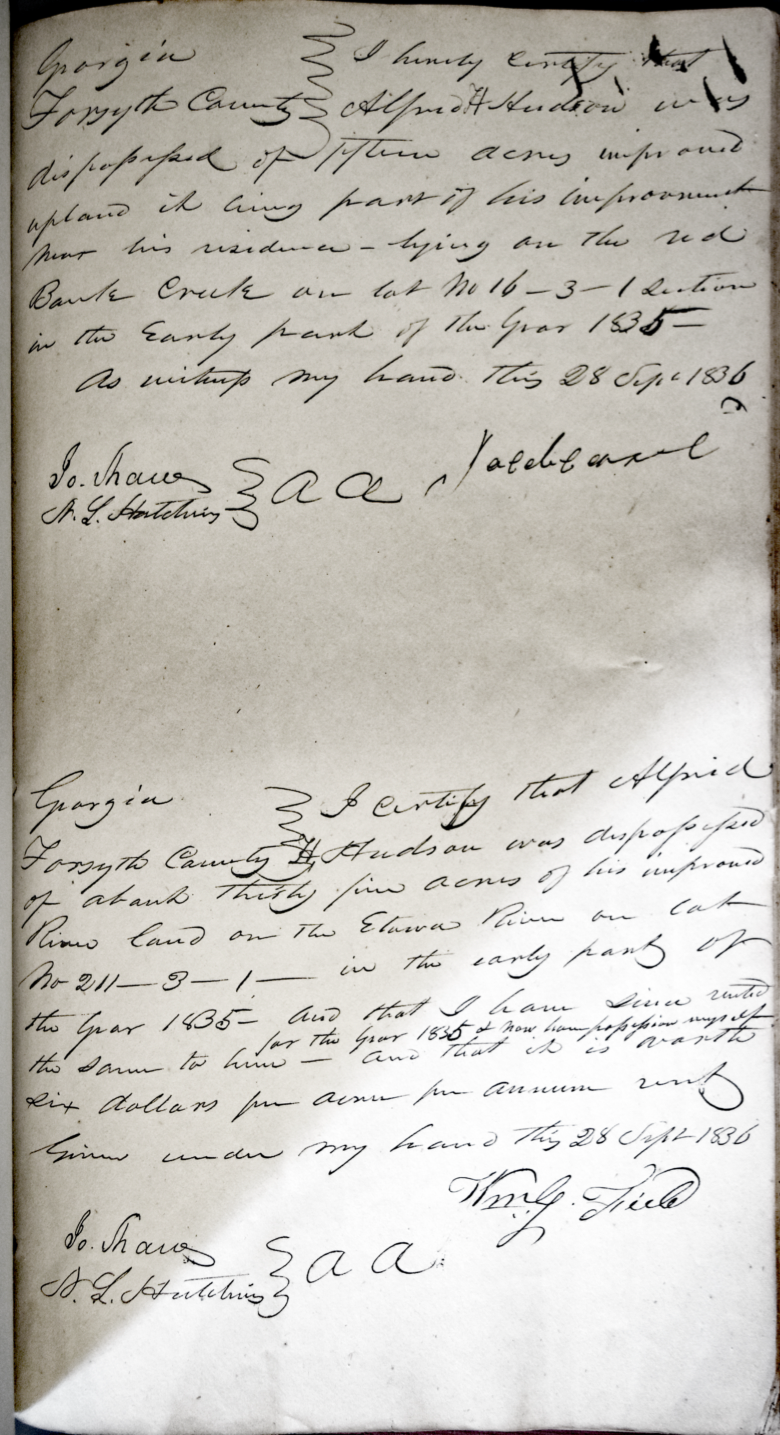 Georgia I hereby certify that
Forsyth County Alfred H Hudson was
dispossessed of fifteen acres improved
upland it being part of his improvement
near his residence – lying on the red
Bank Creek on lot No 16 – 3 – 1 Section
in the Early part of the year 1835 –
As witness my hand this 28 Sept 1836
Jo. Shaw
N. L. Hutchins
A A
Georgia I certify that Alfred
Forsyth County H Hudson was dispossessed
of about thirty five acres of his improved
River land on the Etowa River on Lot
No 211 – 3 – 1 – in the early part of
the year 1835 – and that I have since rented
for the year 1835 & now have possession myself
the same to him – and that it is worth
six dollars per acre per annum rent
Given under my hand this 28 Sept 1836
Wm. G. Field
Jo. Shaw
N. L. Hutchins
A A